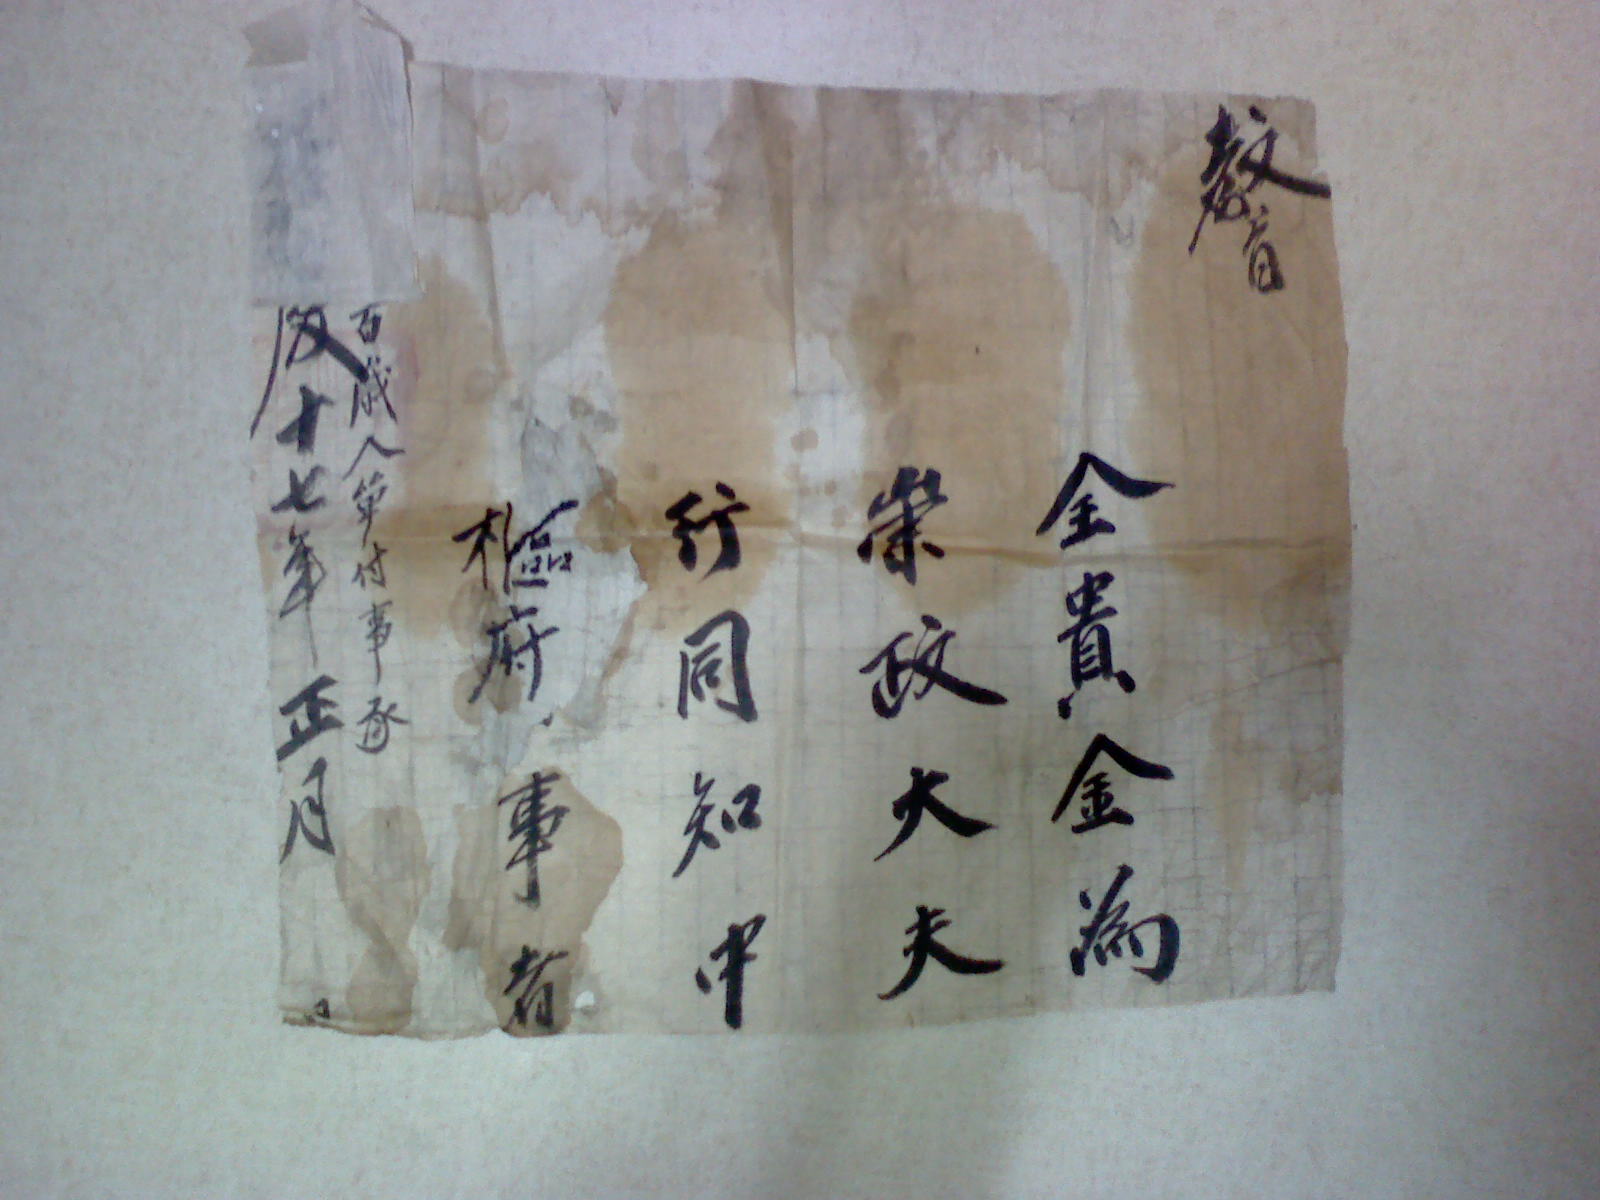 教旨
金貴金為
崇政大夫
行同知中
樞府事者
百歲人第付事承
十七年正月
日